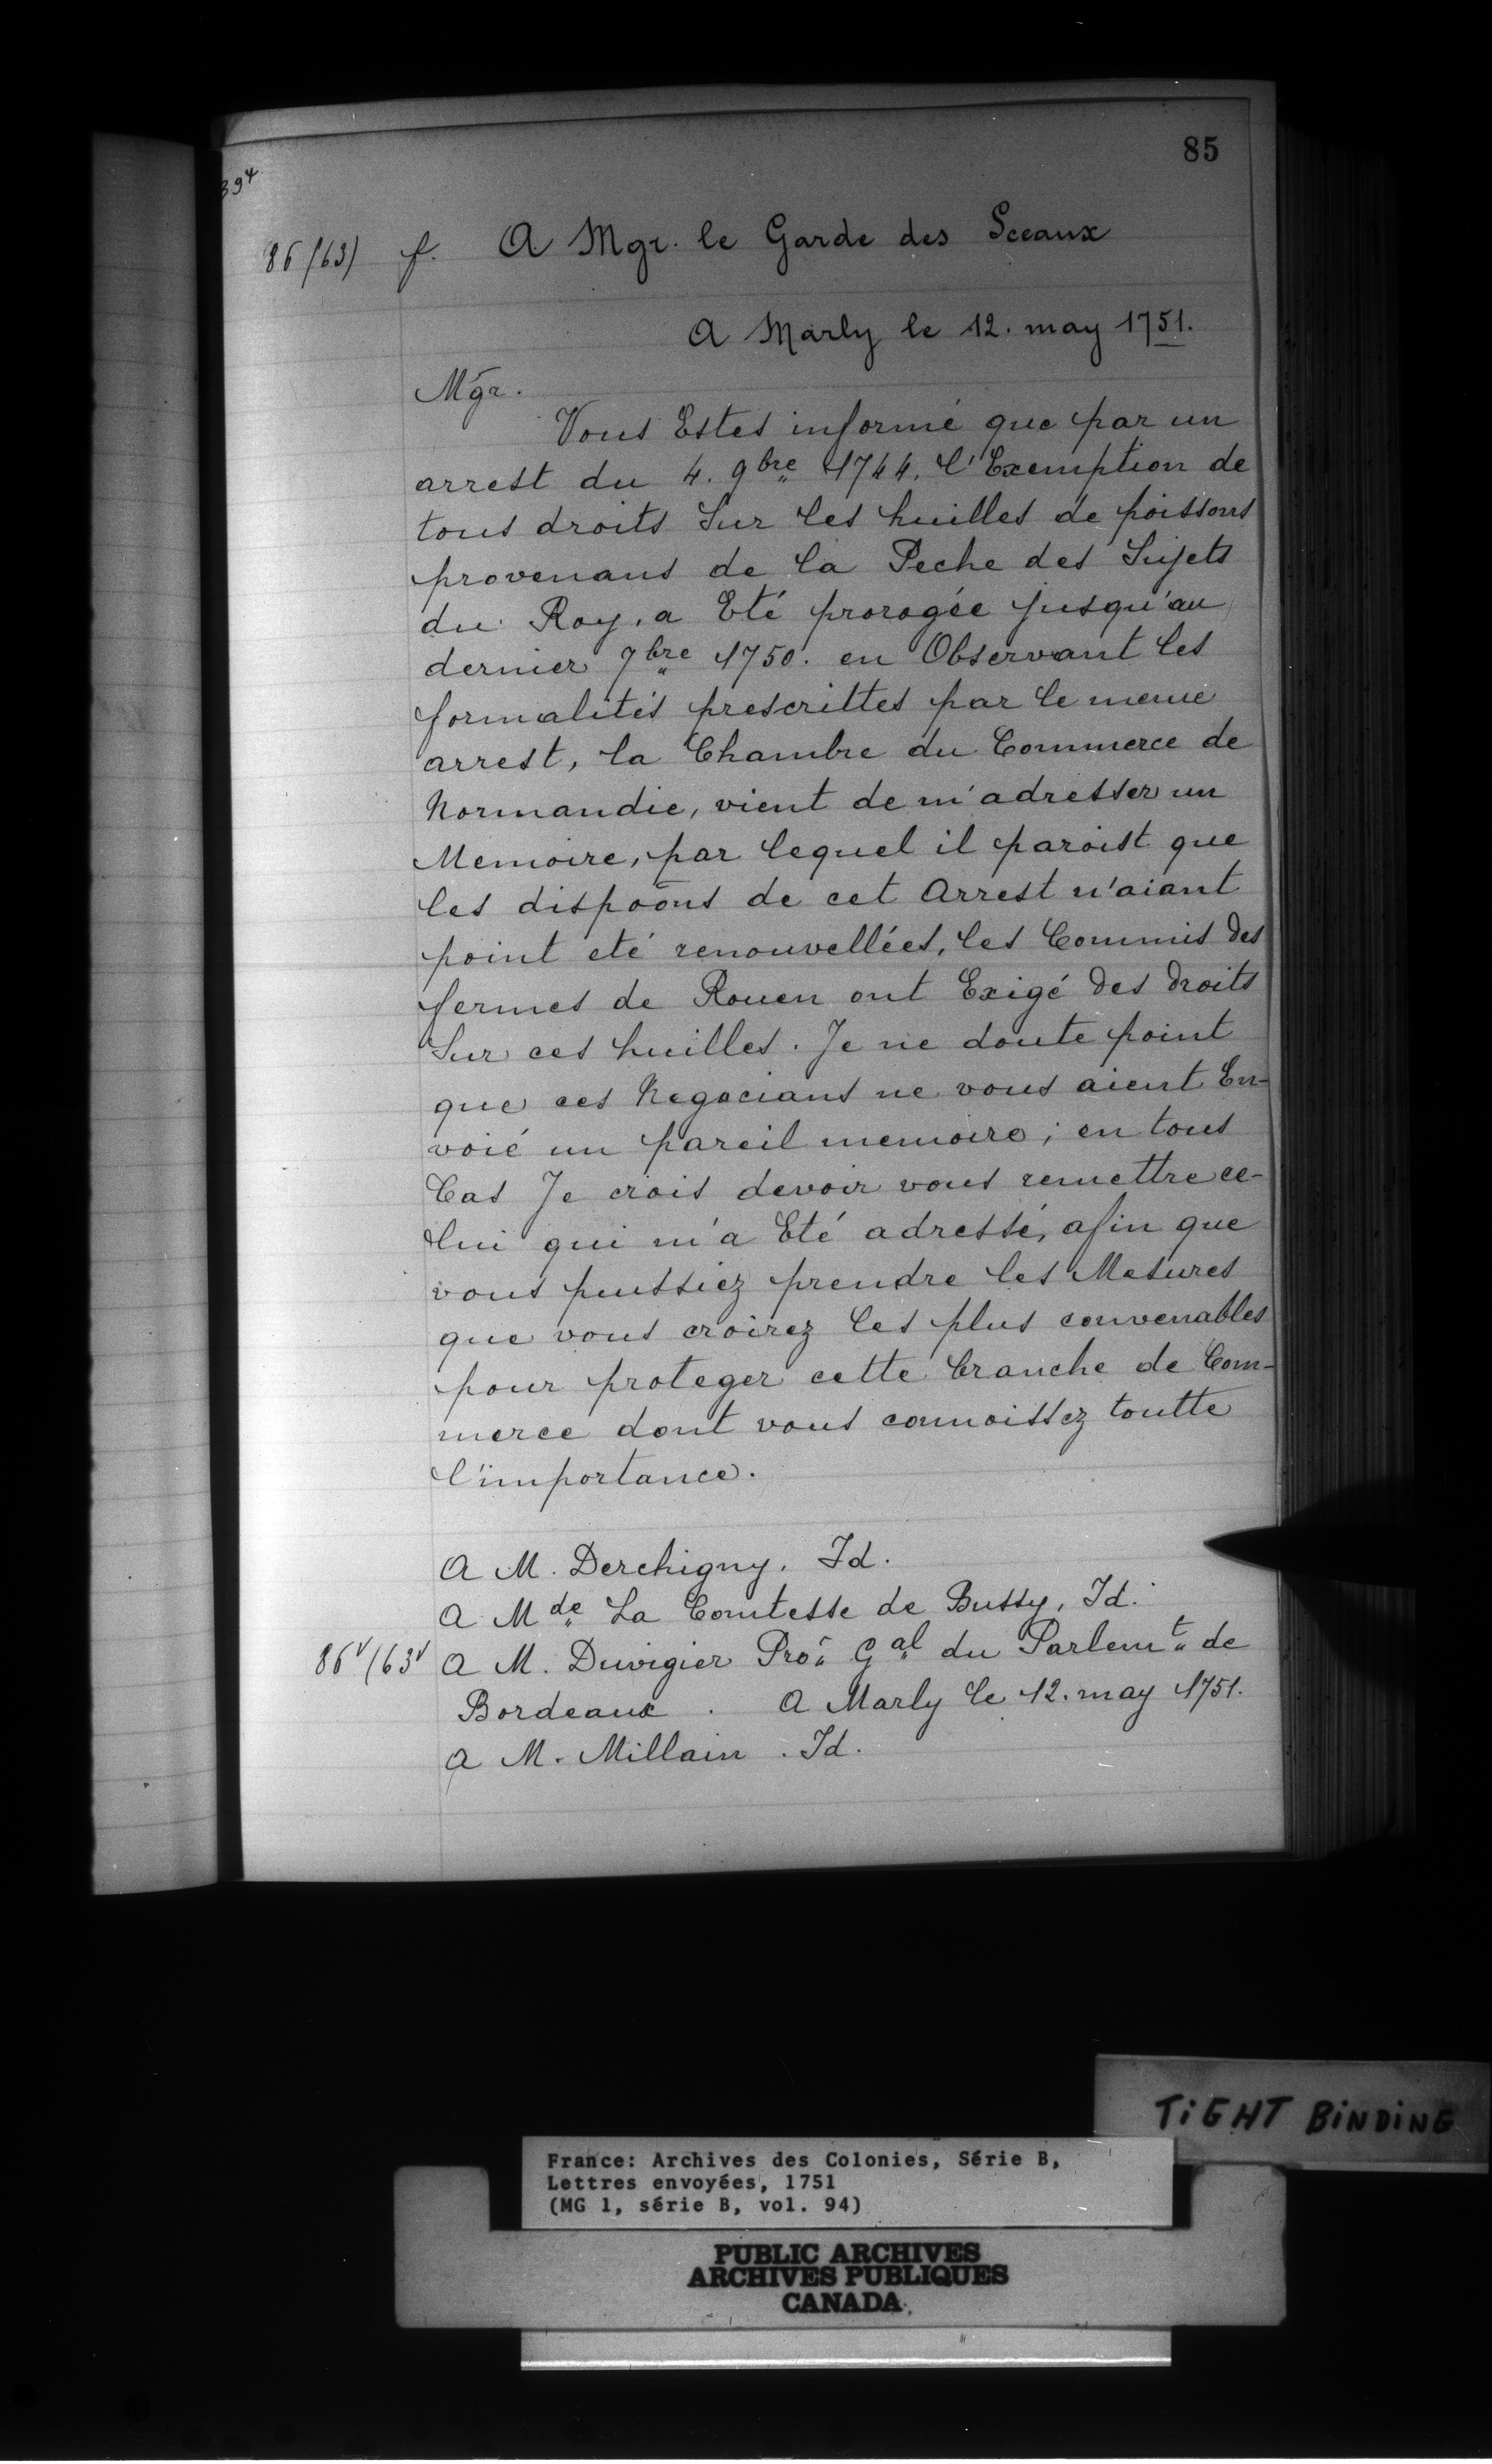 85
394
86 (63) f. A Mgr. le Garde des Sceaux
A Marly le 12. may 1751.
Mgr.
Vous Estes informé que par un
arrest du 4. 9bre 1744. l'Exemption de
tous droits sur les huilles de poissons
provenans de la Peche des Sujets
du Roy, a Eté prorogée jusqu'au
dernier 7bre 1750. en Observant les
formalités prescrittes par le meme
arrest, la Chambre du Commerce de
Normandie, vient de m'adresser un
Memoire, par lequel il paroist que
les dispoõns de cet Arrest n'aiant
point eté renouvellées, les Commis des
fermes de Rouen ont Exigé des droits
sur ces huilles. Je ne doute point
que ces Negocians ne vous aient En-
voié un pareil memoire; en tous
Cas Je crois devoir vous remettre ce-
lui qui m'a Eté adressé, afin que
vous puissiez prendre les Mesures
que vous croirez les plus convenables
pour proteger cette branche de Com-
merce dont vous connoissez toutte
l'importance.
A M. Derchigny. Id.
A Mde La Comtesse de Bussy, Id.
86v (63v A M. Duvigier Pror Gal du Parlemt de
Bordeaux . A Marly le 12. may 1751.
A M. Millain . Id.
TIGHT BINDING
France: Archives des Colonies, Série B,
Lettres envoyées, 1751
(MG 1, série B, vol. 94)
PUBLIC ARCHIVES
ARCHIVES PUBLIQUES
CANADA